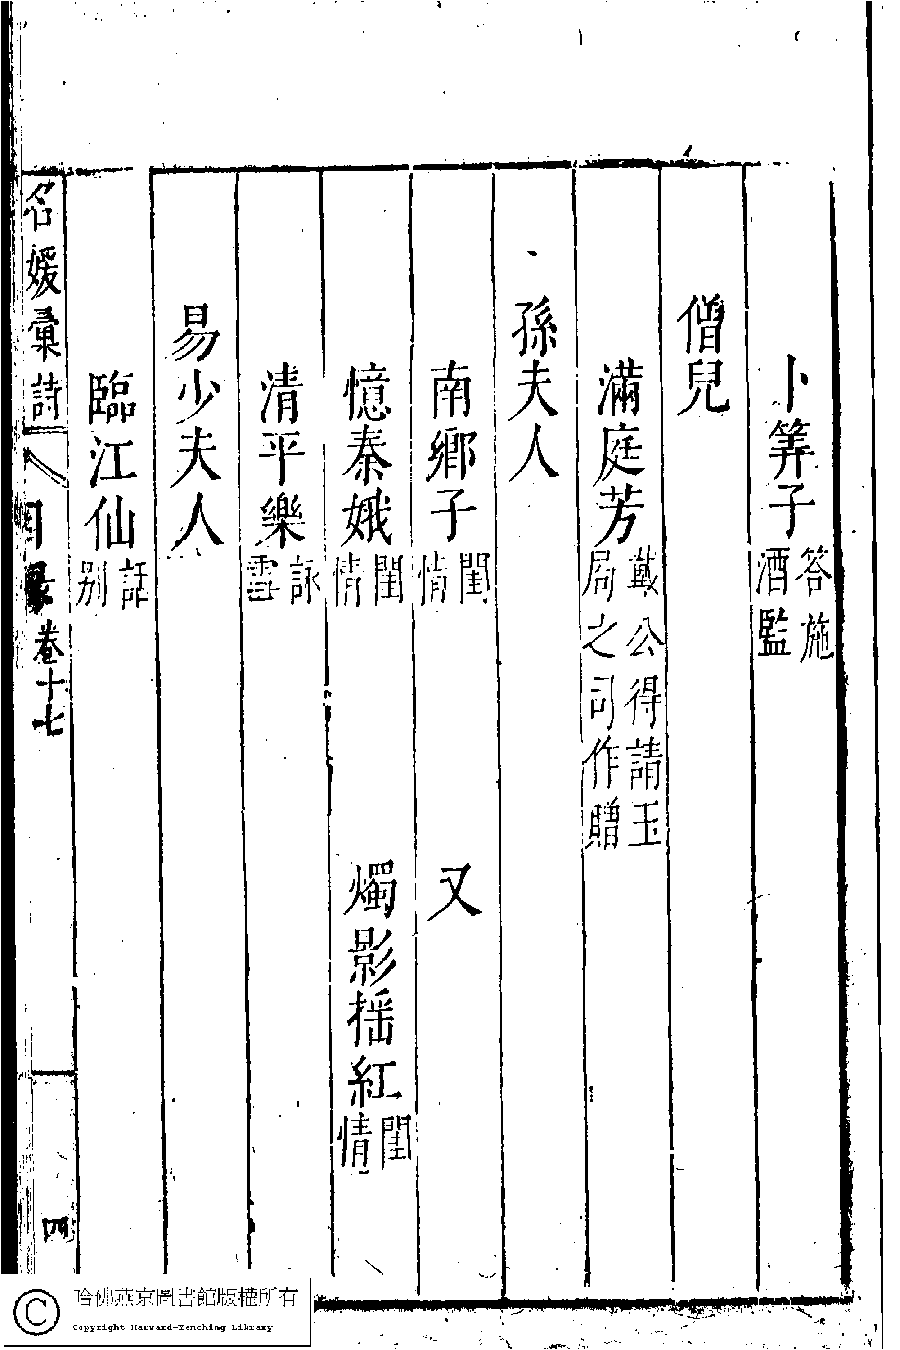 卜筭子答施酒監
僧兒
滿庭芳戴公得請玉局之司作贈
孫夫人
南鄉子閨情 又
憶秦娥閨情 燭影揺紅閨情
清平樂詠雪
易少夫人
臨江仙話别
名媛彙詩 目录卷十七 四
哈佛燕京圖書館版權所有
Copyright Harvard-Yenching Library